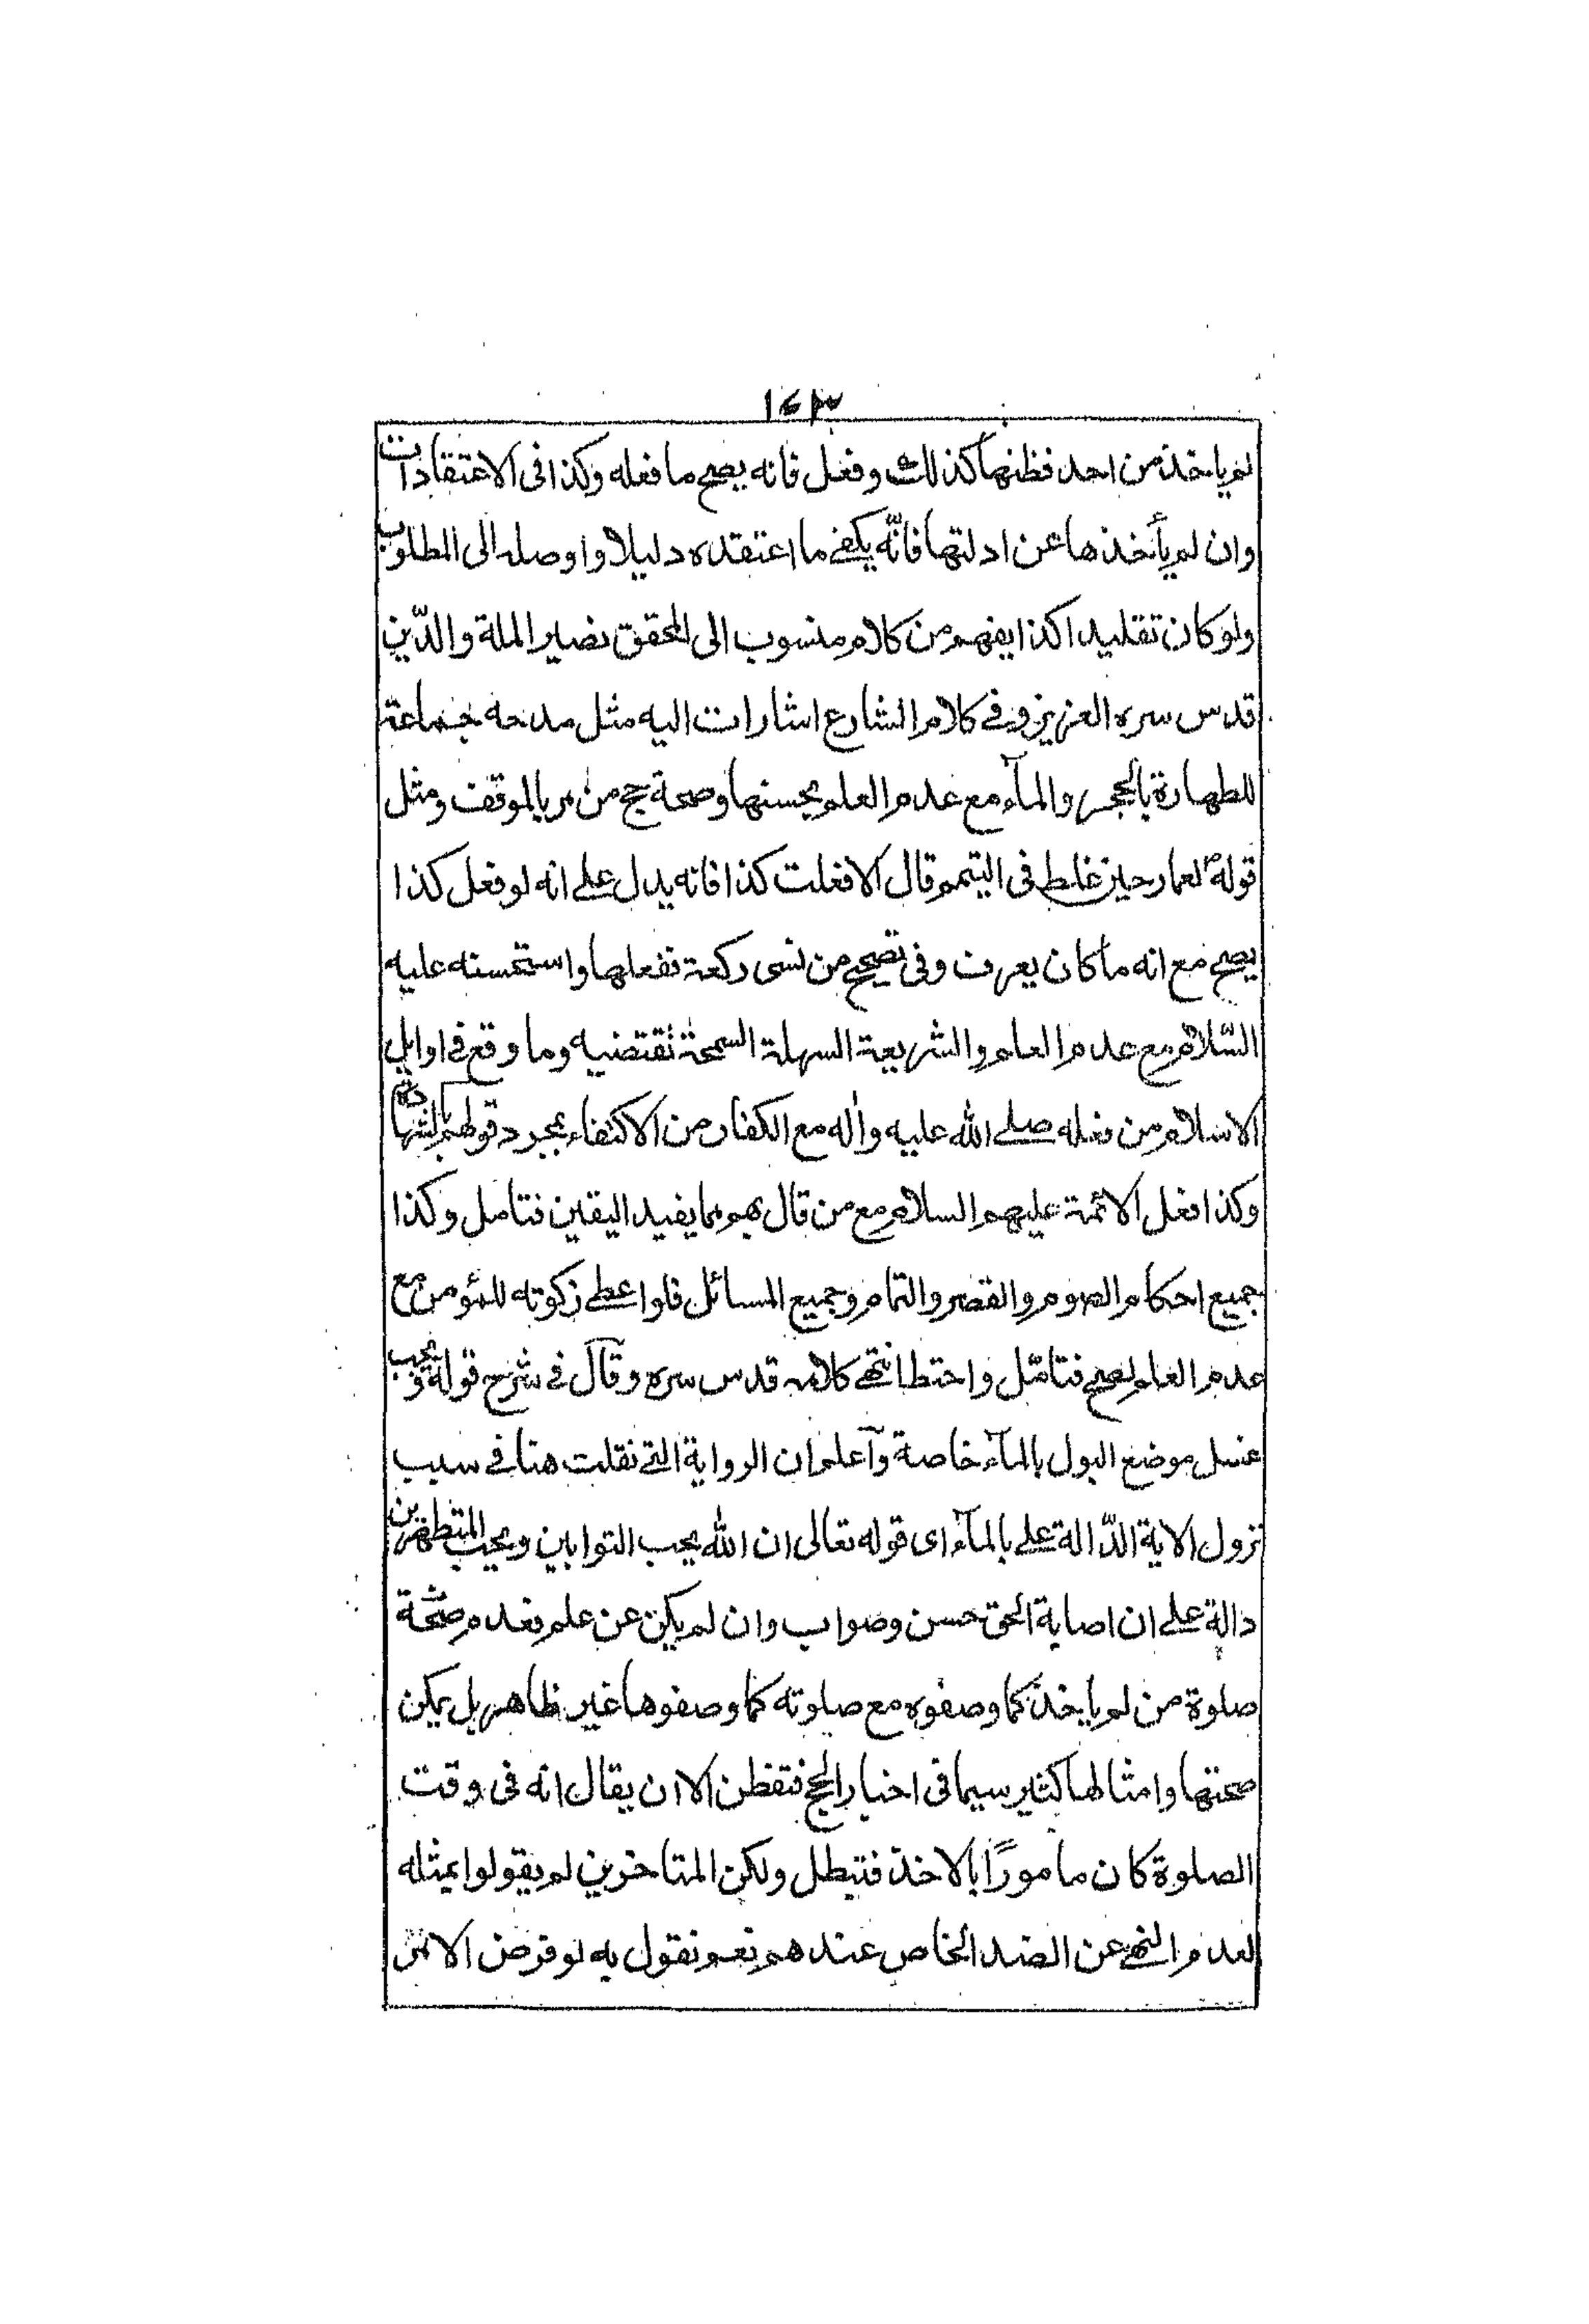 ١٤٣
لم ياخذ من احد فظنها كذلك وفعل فانه يصح ما فعله وكذا فى الاعتقادات
وان لم يأخذها عن ادلتها فانّه يكفى ما اعتقده دليلا واوصله الى المطلوب
ولو كان تقليدا كذا يفهم من كلام منسوب الى المحقق نصير الملة والدّين
قدس سره العزيز وفى كلام الشارع اشارات اليه مثل مدحه جماعة
للطهارة بالحجر والمآء مع عدم العلم بحسنها وصحة حج من مر بالموقف ومثل
قوله لعمار حين غلط فى التيمم قال الا فعلت كذا فانه يدل على انه لو فعل كذا
يصح مع انه ما كان يعرف وفى تصحيح من نسى ركعة ففعلها واستحسنه عليه
السّلام مع عدم العلم والشريعة السهلة السمحة تقتضيه وما وقع فى اوايل
الاسلام من فعله صلى الله عليه واله مع الكفار من الاكتفاء بمجرد قولهم بالشهادة
وكذا فعل الائمة عليهم السلام مع من قال بهم مما يفيد اليقين فتامل وكذا
جميع احكام الصوم والقصر والتمام وجميع المسائل فلو اعطى زكوته للمؤمن مع
عدم العلم لصح فتامّل واحتط انتهى كلامه قدس سره وقال فى شرح قوله ويجب
غسل موضع البول بالمآء خاصة وآعلم ان الرواية التى نقلت هنا فى سبب
نزول الاية الدّالة على بالمآء اى قوله تعالى ان الله يحب التوابين ويحب المتطهرين
دالة على ان اصابة الحق حسن وصواب وان لم يكن عن علم فعدم صحّة
صلوة من لم ياخذ كما وصفوه مع صلوته كما وصفوها غير ظاهر بل يمكن
صحتها وامثالها كثير سيما فى اخبار الحج فتفطن الا ان يقال انه فى وقت
الصلوة كان مامورًا بالاخذ فتبطل ولكن المتاخرين لم يقولوا بمثله
لعدم النهى عن الضد الخاص عندهم نعم نقول به لو فرض الامر